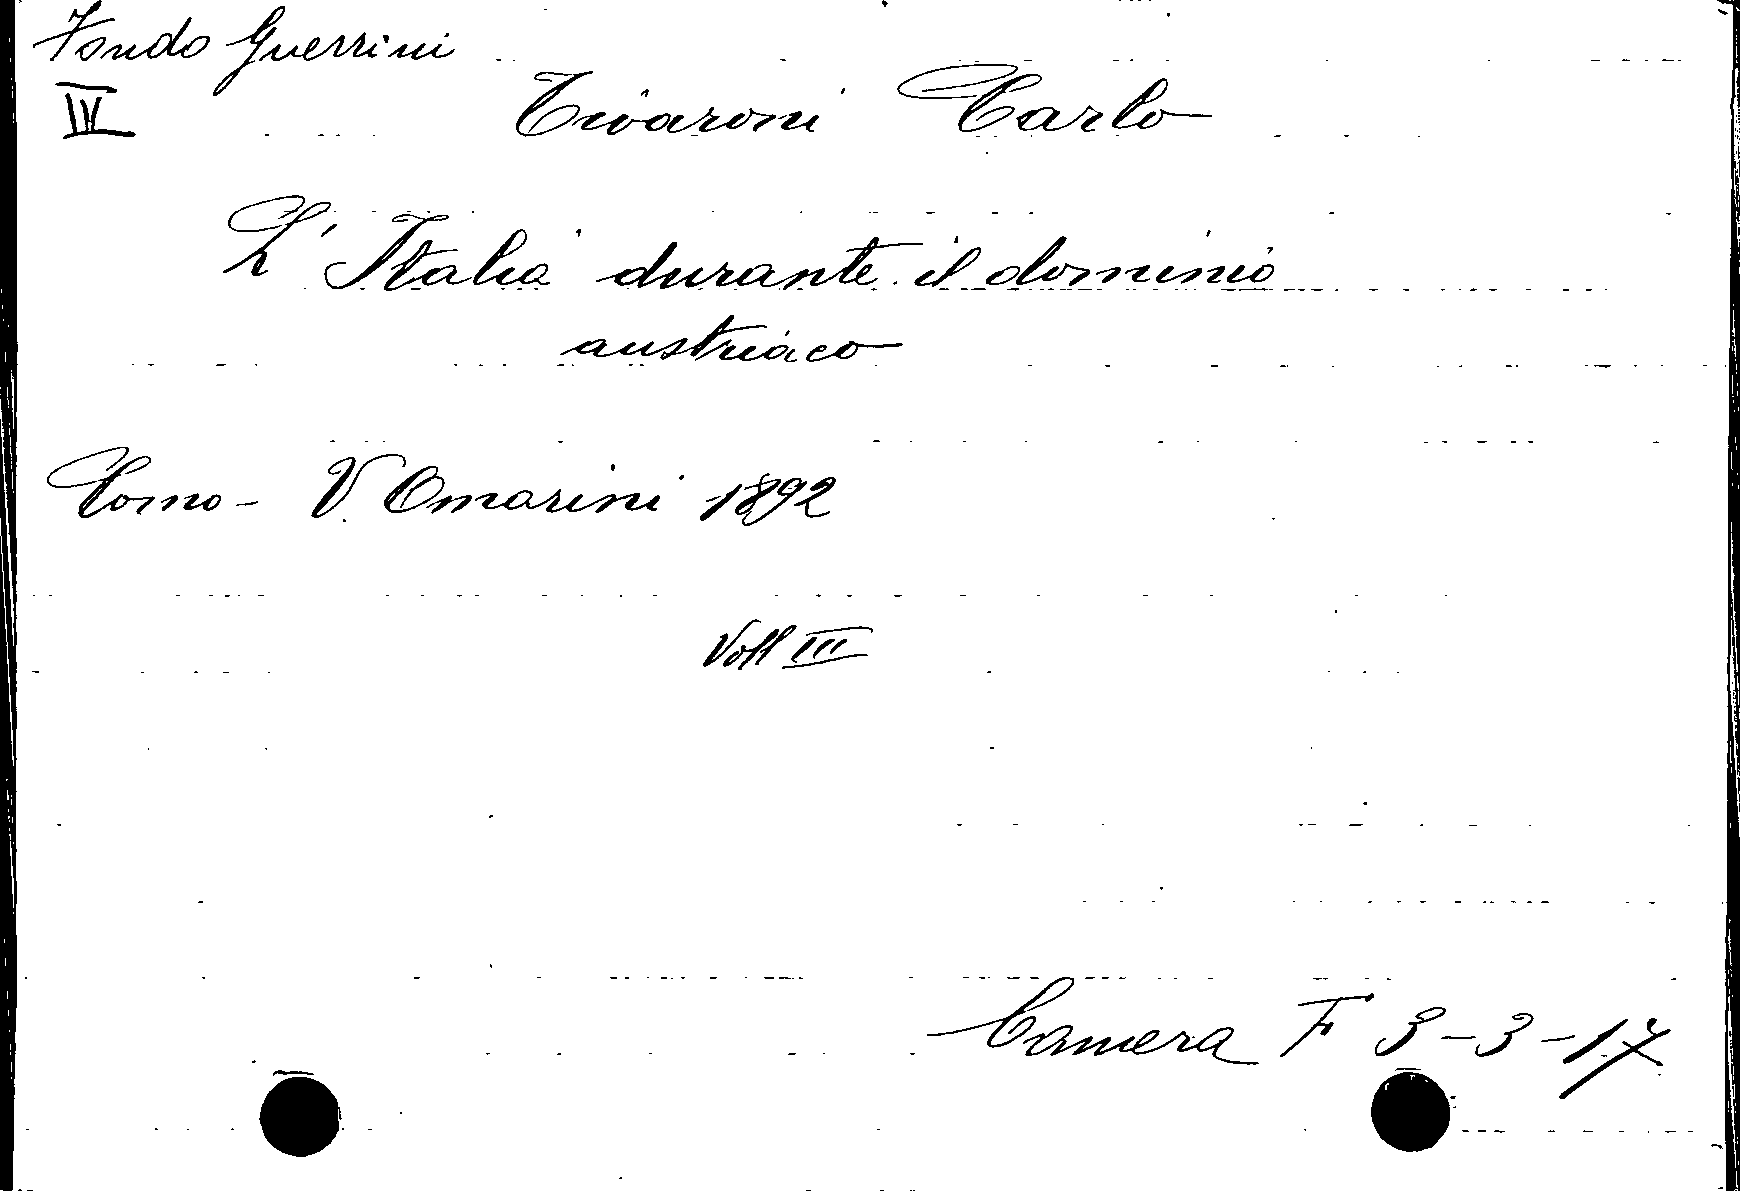 Fondo Guerrini
IV
Tivaroni Carlo
L'Italia durante il dominio
austriaco
Como - V. Omarini 1892
Voll III
Camera F 3-3-17